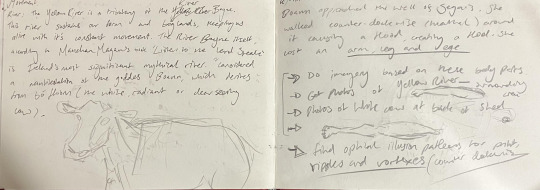 River: the Yellow River is a tributary of the Boyne.
This river sustains our farm and boglands, keeping us
alive with it's constant movement. The River Boyne itself,
according to Manchan Magan's book 'Listen to the land Speak'
is Ireland's most significant mythical river, considered
a manifestation of the goddess Boann, which derives
from bó fhionn (the white, radiant or clear seeing
cow).
Boann approached the well of Segais. She
walked counter-clockwise (tuathal) around
it causing a flood, creating a flood. She
lost an arm, leg and eye
Do imagery based on these body parts
Get photos of Yellow River
Photos of whole cows at back of shed
find optical illusion patterns for print
ripples and vortexes (counter clockwise)